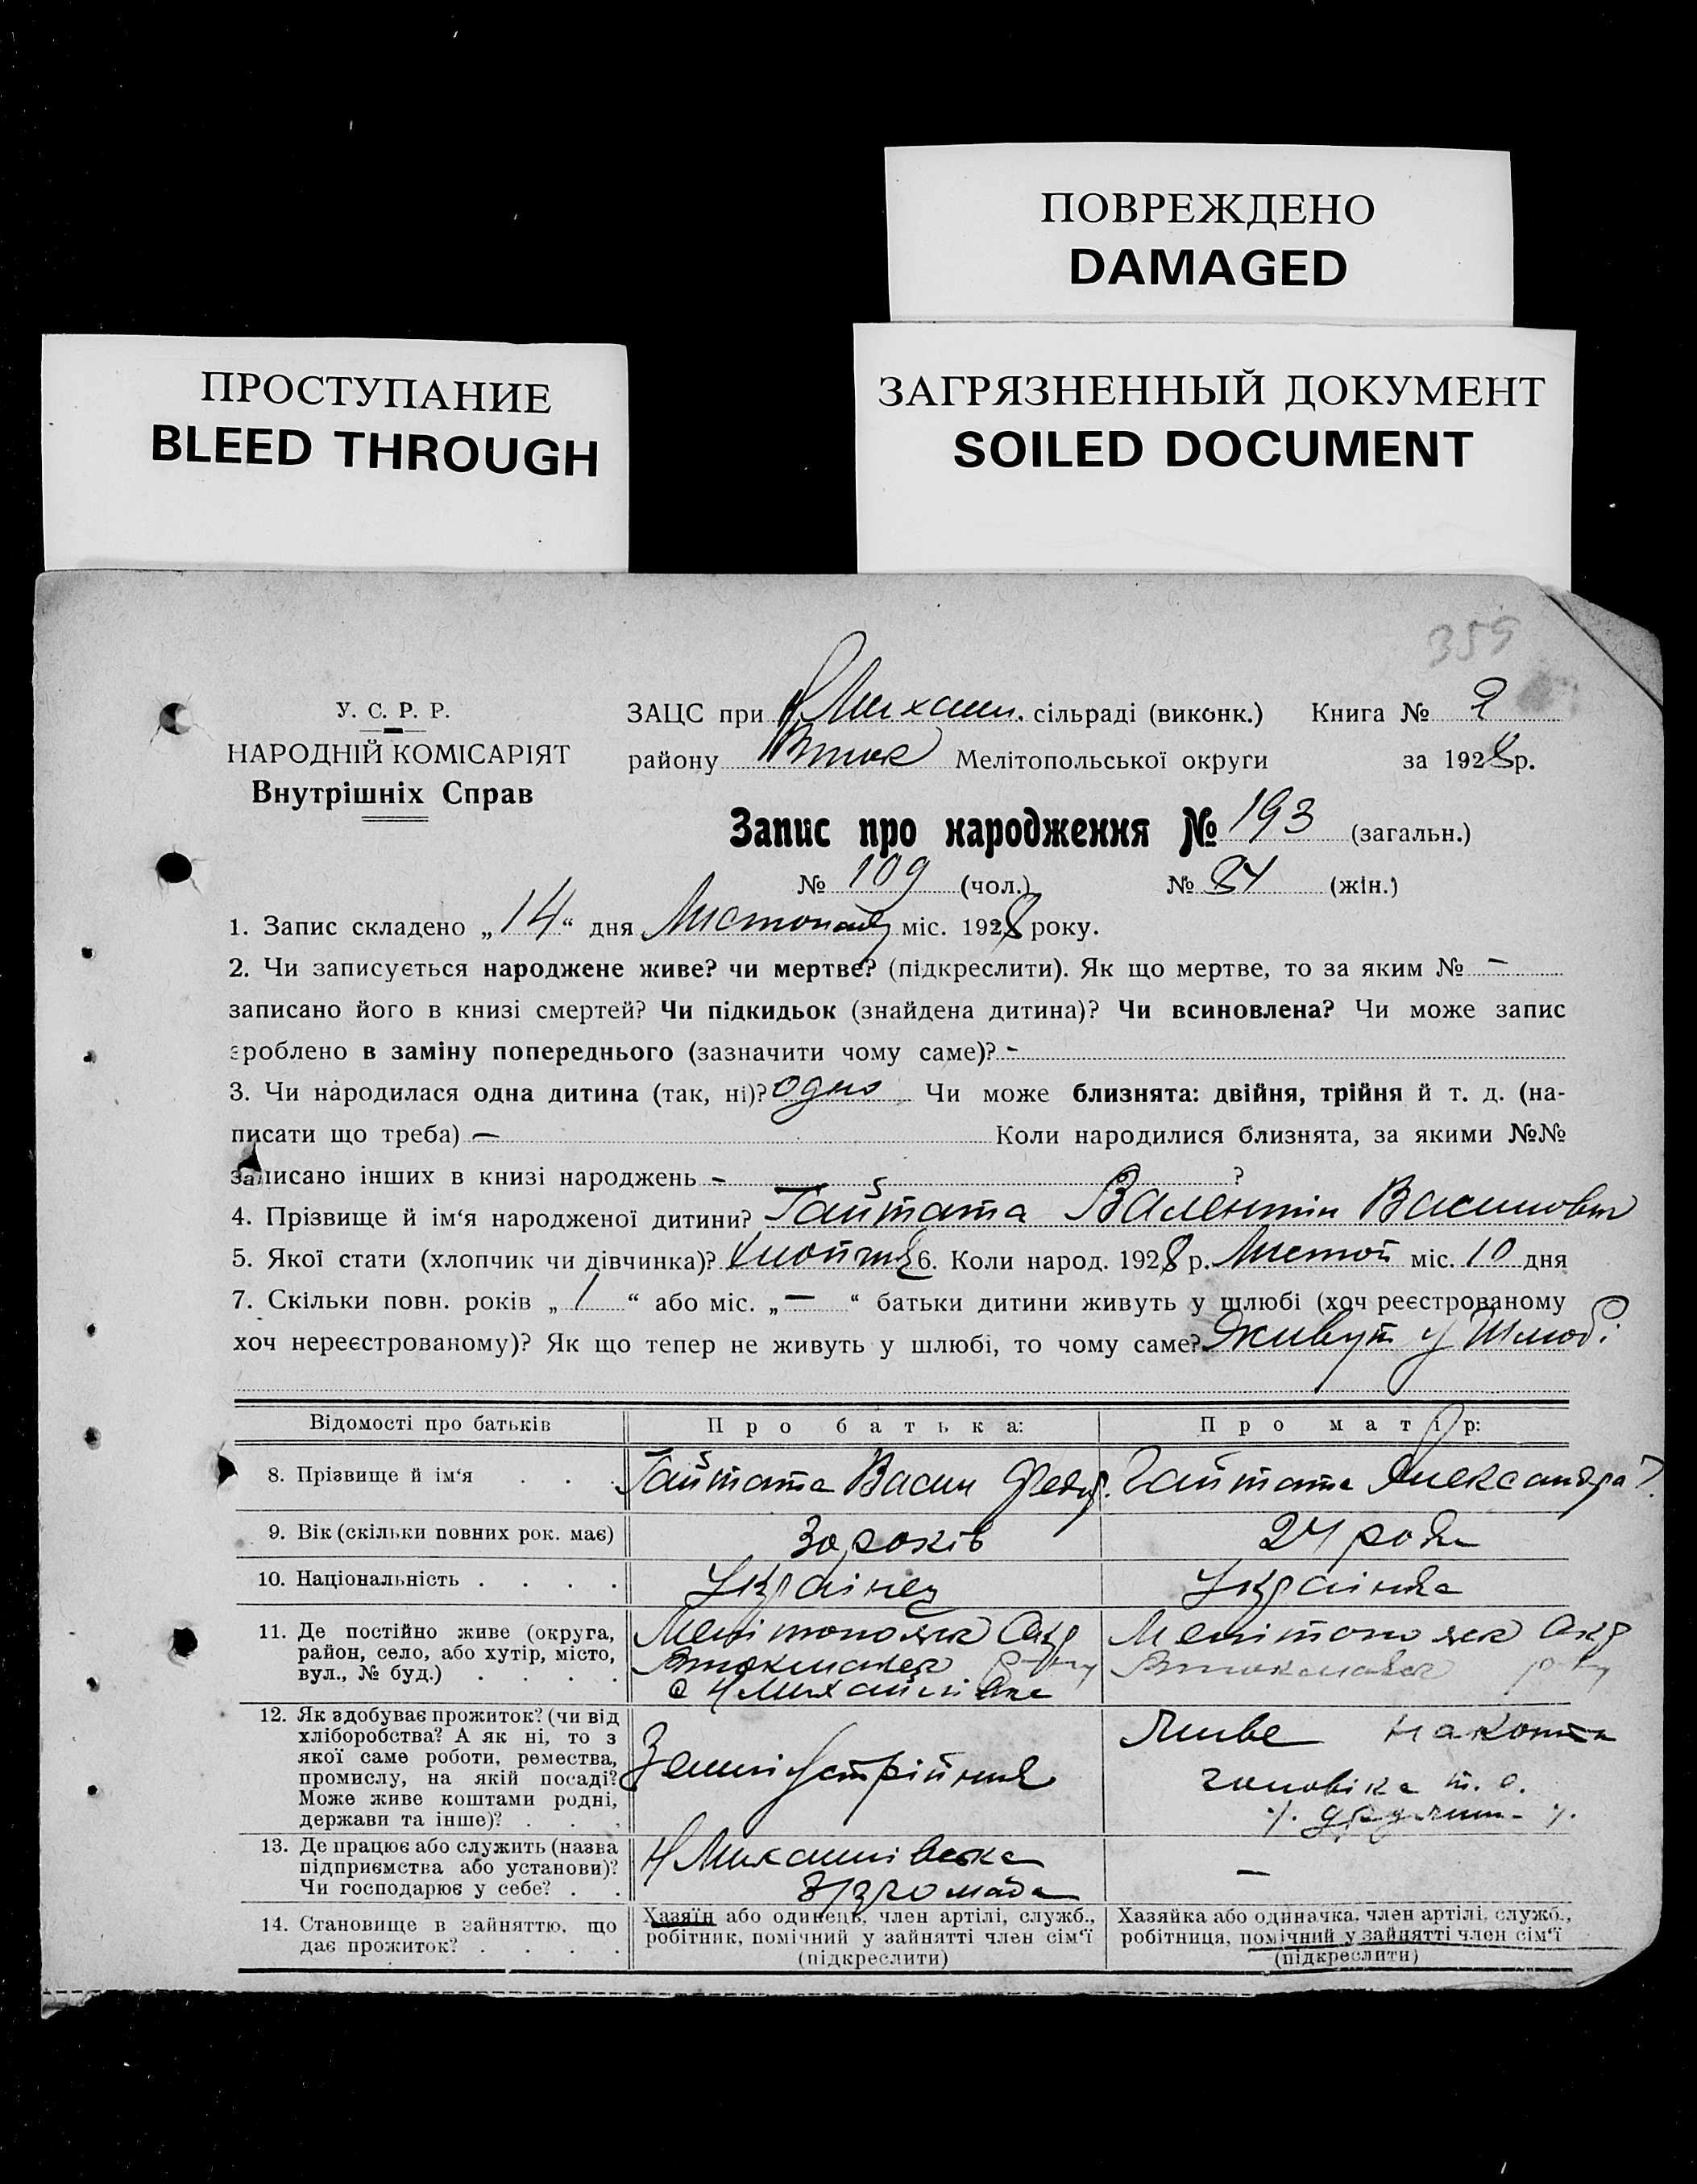 ПОВРЕЖДЕНО
DAMAGED
ПРОСТУПАНИЕ
BLEED THROUGH
ЗАГРЯЗНЕННЫЙ ДОКУМЕНТ
SOILED DOCUMENT
359
У. С. Р. Р.
НАРОДНІЙ КОМІСАРІЯТ
Внутрішніх Справ
ЗАЦС при Н Михайл. сільраді (виконк.) Книга № 2
району Вток Мелітопольської округи за 1928 р.
Запис про народження № 193 (загальн.)
№ 109 (чол.) № 84 (жін.)
1. Запис складено „14“ дня Листопад міс. 1928 року.
2. Чи записується народжене живе? чи мертве? (підкреслити). Як що мертве, то за яким № —
записано його в книзі смертей? Чи підкидьок (знайдена дитина)? Чи всиновлена? Чи може запис
зроблено в заміну попереднього (зазначити чому саме)? -
3. Чи народилася одна дитина (так, ні)? одно Чи може близнята: двійня, трійня й т. д. (на-
писати що треба) — Коли народилися близнята, за якими №№
записано інших в книзі народжень - ?
4. Прізвище й ім‘я народженої дитини? Гайтота Валентін Васильович
5. Якої стати (хлопчик чи дівчинка)? Хлопчик 6. Коли народ. 1928 р. Листоп міс. 10 дня
7. Скільки повн. років „1“ або міс. „—“ батьки дитини живуть у шлюбі (хоч реєстрованому
хоч нереєстрованому)? Як що тепер не живуть у шлюбі, то чому саме? Живут у Шлюбі
Відомості про батьків Про батька: Про матір:
8. Прізвище й ім‘я . . . Гайтота Васил Федор. Гайтота Александра
9. Вік (скільки повних рок. має) 30 років 24 роки
10. Національність . . . . Українец Українка
11. Де постійно живе (округа,
район, село, або хутір, місто,
вул., № буд.) . . . .
Мелітопольск Окр
с Н Михайлівка
Мелітопольск Окр
12. Як здобуває прожиток? (чи від
хліборобства? А як ні, то з
якої саме роботи, ремества,
промислу, на якій посаді?
Може живе коштами родні,
держави та інше)? . . .
Землеустрійник
на кошти
чоловіка т. о.
13. Де працює або служить (назва
підприємства або установи)?
Чи господарює у себе? . .
Н Михайлівська
громада
—
14. Становище в зайняттю, що
дає прожиток? . . . .
Хазяїн або одинець, член артілі, служб.,
робітник, помічний у зайнятті член сім‘ї
(підкреслити)
Хазяйка або одиначка, член артілі, служб.,
робітниця, помічний у зайнятті член сім‘ї
(підкреслити)